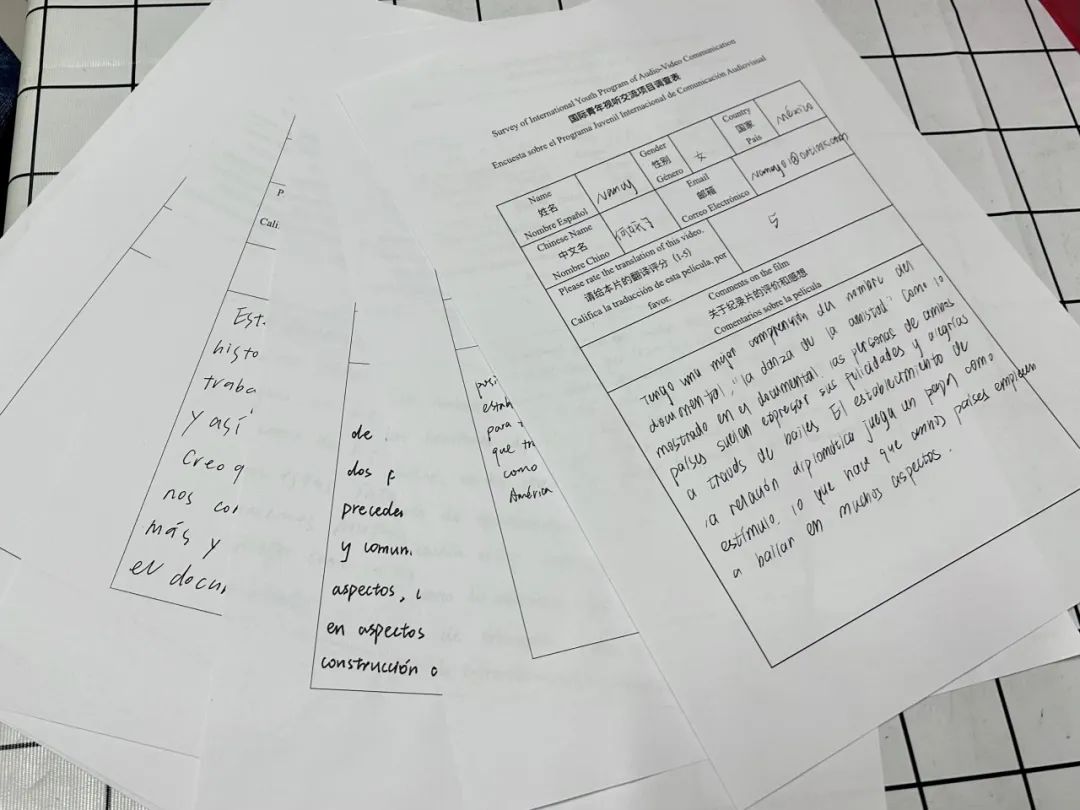 Survey of International Youth Program of Audio-Video Communication
国际青年视听交流项目调查表
Encuesta sobre el Programa Juvenil Internacional de Comunicación Audiovisual
Name
姓名
Nombre Español
Nancy
Gender
性别
Género
女
Country
国家
País
México
Chinese Name
中文名
Nombre Chino
Email
邮箱
Correo Electrónico
Please rate the translation of this video.
请给本片的翻译评分（1-5）
Califica la traducción de esta película, por
favor.
5
Comments on the film
关于纪录片的评价和感想
Comentarios sobre la película
Tengo una mejor comprensión del nombre del
documental, "la danza de la amistad". Como lo
mostrado en el documental, las personas de ambos
países suelen expresar sus felicidades y alegrías
a través de bailes. El establecimiento de
la relación diplomática juega un papel como
estímulo, lo que hace que ambos países empiecen
a bailar en muchos aspectos.
posi
estab
para
que tr
como
América
de
dos p
preceden
y comun
aspectos,
en aspectos
construcción
P
Cali
Est
histo
traba
y así
Creo q
nos con
más y
el docu